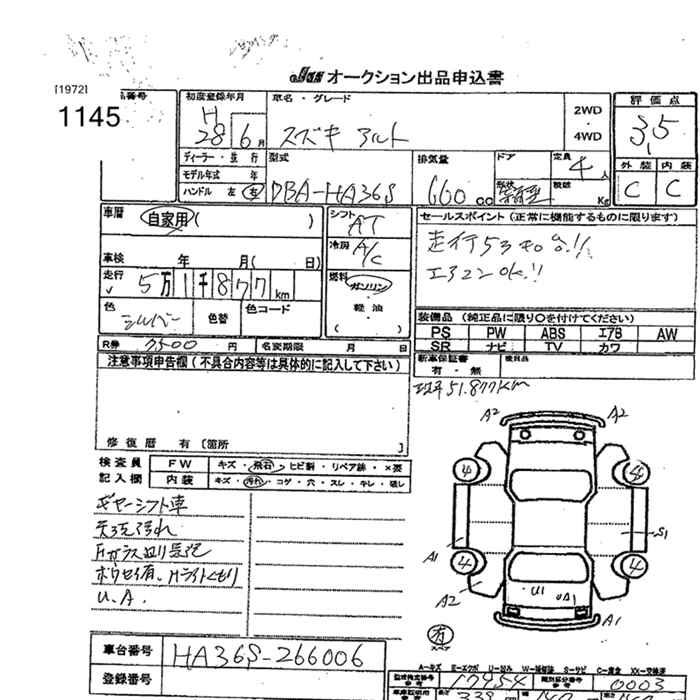 オークション出品申込書
[1972]
1145
初度登録年月
車名・グレード
評価点
H
28 6月
スズキ アルト
2WD
・
4WD
3.5
ディーラー・並行
型式
排気量
ドア
定員
外装 内装
モデル年式 年
ハンドル 左 右
DBA-HA36S
660cc
形状
4人
積載
Kg
C C
車歴
自家用( )
シフト
AT
セールスポイント(正常に機能するものに限ります)
冷房
A/C
エアコンOK!!
車検 年 月( 日)
走行
5万1千877km
燃料
ガソリン
・
軽油
( )
色
シルバー
色替
色コード
装備品(純正品に限り○を付けてください)
PS PW ABS エアB AW
SR ナビ TV カワ
R券
7500円
名変期限 月 日
新車保証書
有・無
後日品
注意事項申告欄(不具合内容等は具体的に記入して下さい)
51.877km
修復歴 有〔箇所 〕
検査員
記入欄
FW
キズ・飛石・ヒビ割・リペア跡・×要
内装
キズ・汚れ・コゲ・穴・スレ・キレ・塗し
ギヤーシフト車
U.A.
A2 A2
4 4
A1 S1
4 4
A2 U1 A1
A1
有
スペア
車台番号
HA36S-266006
登録番号
A-キズ E-エクボ U-凹み W-補修跡 S-サビ C-腐食 XX-交換済
17954
類別区分番号
0003